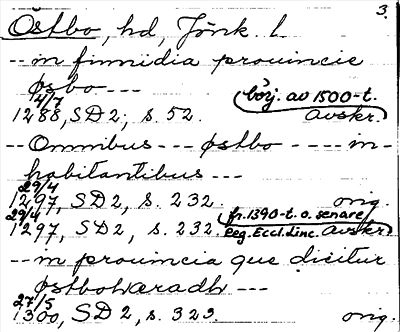 3.
Östbo, hd, Jönk. l
-- in finnidia prouincie
øsbo ---
4/7
1288, SD 2, s. 52. (börj. av 1500-t. avskr.)
-- Omnibus --- østbo ---- in-
habitantibus ---
29/4
1297, SD 2, s. 232. orig.
29/4
1297, SD 2, s. 232. (fr. 1390-t. o. senare
Reg. Eccl. Linc. avskr.)
-- in prouincia que dicitur
østbohæradh ---
27/5
1300, SD 2, s. 323. orig.